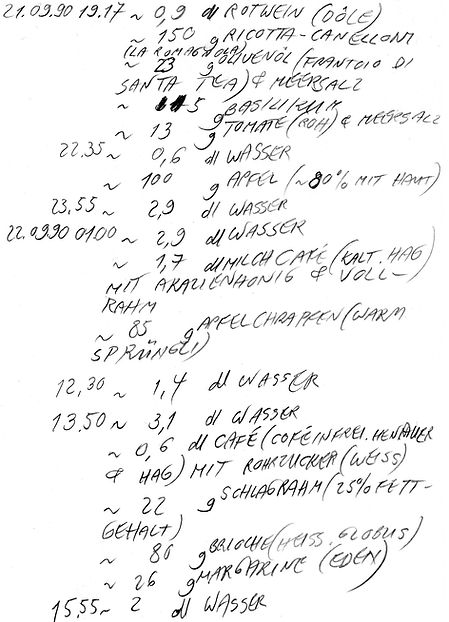 21.09.90 19.17 ~ 0,9 dl ROTWEIN (DÔLE)
~ 150 g RICOTTA-CANELLONI
(LA ROMAGNOLA)
~ 23 g OLIVENÖL (FRANTOIO DI
SANTA TEA) & MEERSALZ
~ 5 g BASILIKUM
~ 13 g TOMATE (ROH) & MEERSALZ
22.35 ~ 0,6 dl WASSER
~ 100 g APFEL (~80% MIT HAUT)
23.55 ~ 2,9 dl WASSER
22.09.90 01.00 ~ 2,9 dl WASSER
~ 1,7 dl MILCHCAFÉ (KALT. HAG)
MIT AKAZIENHONIG & VOLL-
RAHM
~ 85 g APFELCHRAPFEN (WARM
SPRÜNGLI)
12,30 ~ 1,4 dl WASSER
13.50 ~ 3,1 dl WASSER
~ 0,6 dl CAFÉ (COFÉINFREI.
& HAG) MIT ROHRZUCKER (WEISS)
~ 22 g SCHLAGRAHM (25% FETT-
GEHALT)
~ 80 g BRIOCHE (HEISS. GLOBUS)
~ 26 g MARGARINE (EDEN)
15,55 ~ 2 dl WASSER